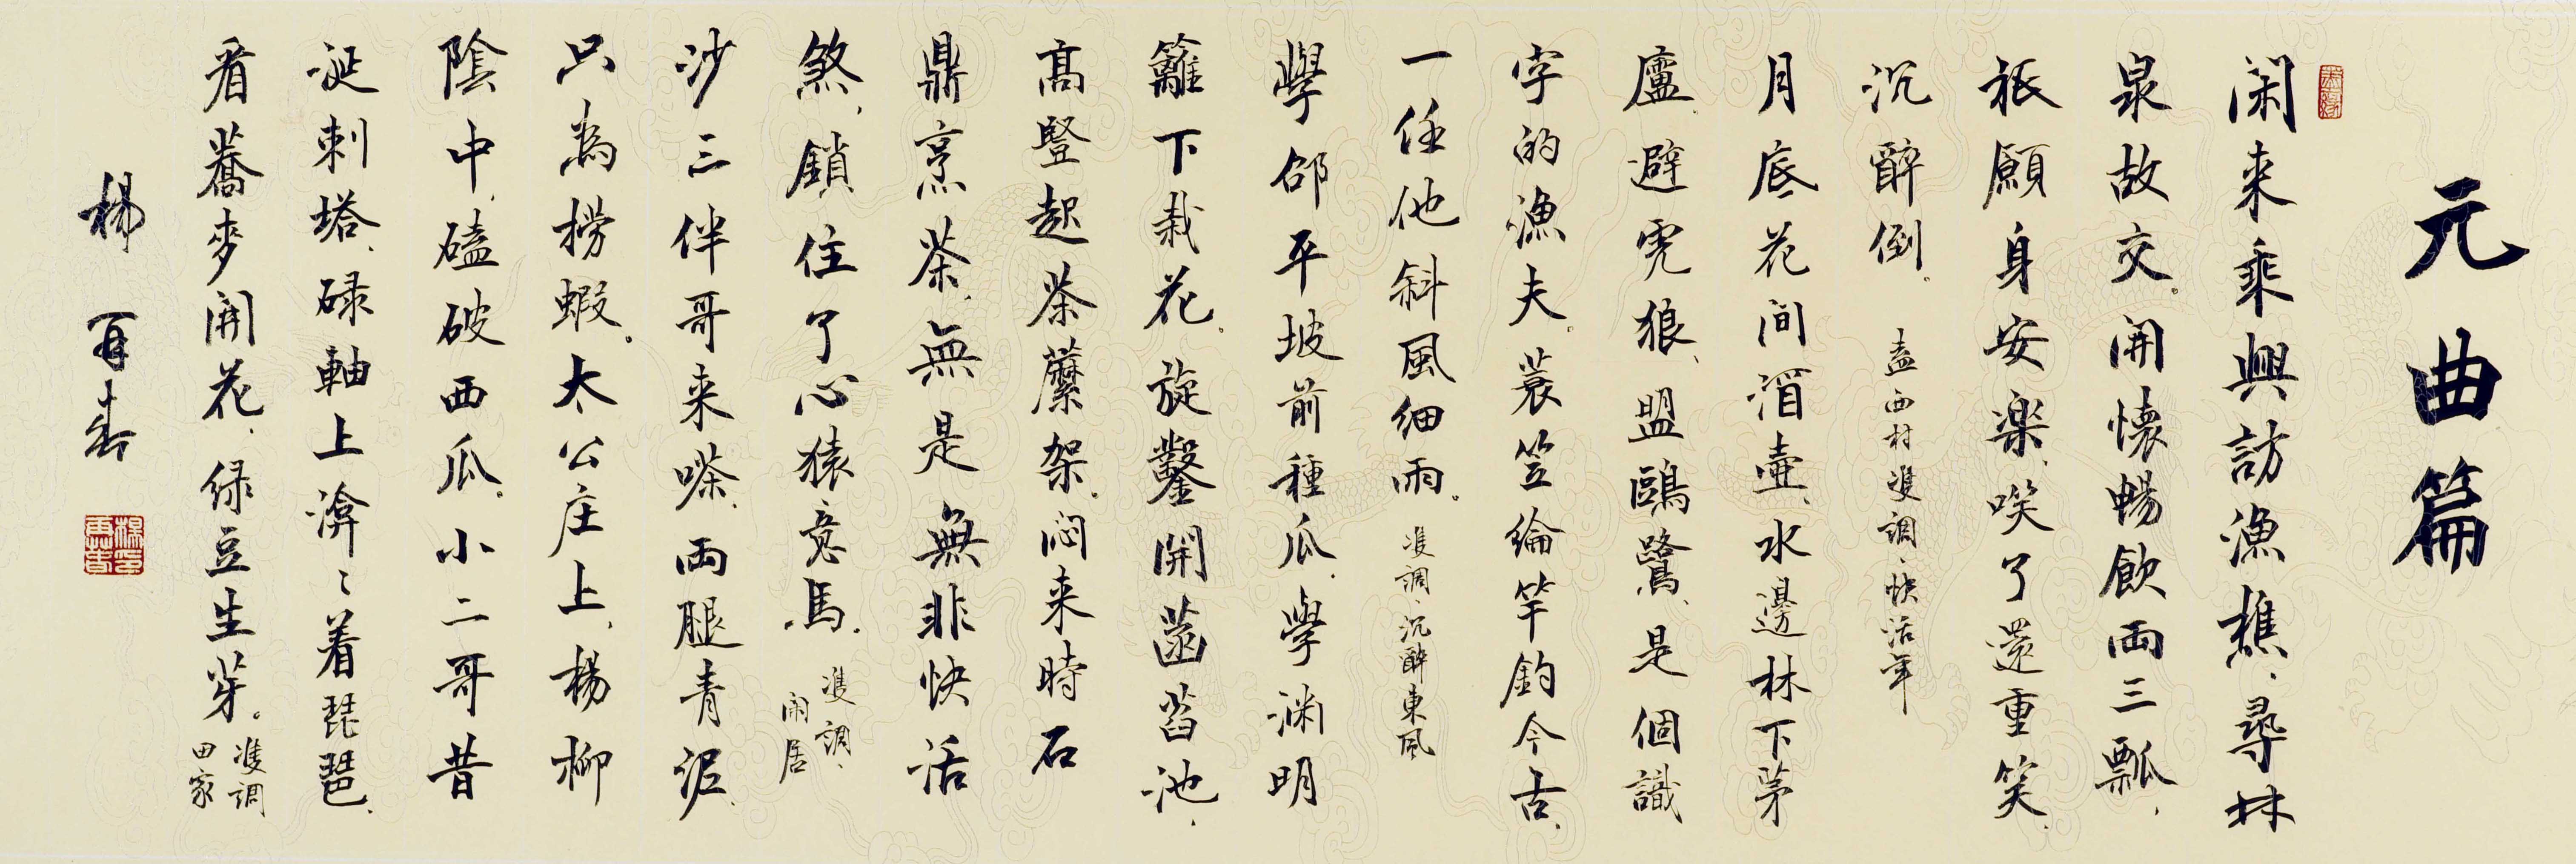 元曲篇
闲来乘興訪漁樵、尋林
泉故交。開懷暢飲両三瓢，
祇願身安楽、笑了還重笑、
沉醉倒。
盍西村雙調、快活年
月底花间酒壷、水邊林下茅
廬、避虎狼、盟鷗鷺、是個識
字的漁夫。蓑笠綸竿釣今古、
一任他斜風细雨。
雙調、沉醉東風
學邵平坡前種瓜、學渊明
籬下栽花、旋鑿開菡萏池，
高豎起荼蘼架。闷来時石
鼎烹茶、無是無非快活
煞，鎖住了心猿意馬。
雙調、
闲居
沙三伴哥来嗏、両腿青泥、
只為捞蝦。太公庄上、楊柳
陰中，磕破西瓜。小二哥昔
涎剌塔、碌軸上渰〻着琵琶、
看蕎麥開花，绿豆生芽。
雙調
田家
楊再春